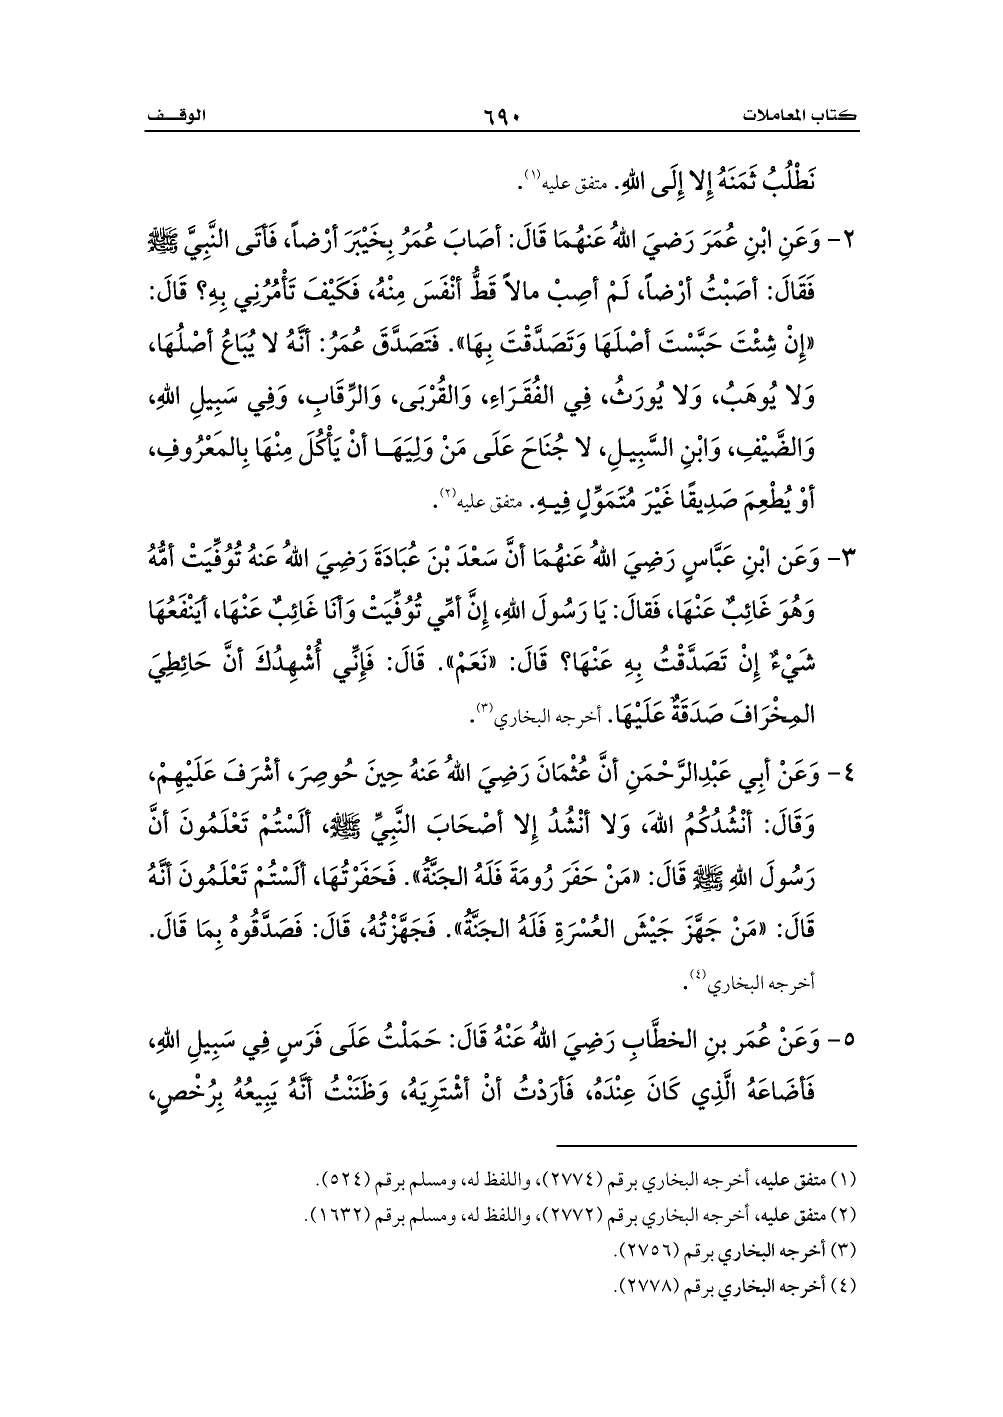 كتاب المعاملات ٦٩٠ الوقــف
نَطْلُبُ ثَمَنَهُ إِلا إِلَى اللهِ. متفق عليه(١).
٢- وَعَنِ ابْنِ عُمَرَ رَضيَ اللهُ عَنهُمَا قَالَ: أصَابَ عُمَرُ بِخَيْبَرَ أرْضاً، فَأتَى النَّبِيَّ ﷺ
فَقَالَ: أصَبْتُ أرْضاً، لَمْ أصِبْ مالاً قَطُّ أنْفَسَ مِنْهُ، فَكَيْفَ تَأْمُرُنِي بِهِ؟ قَالَ:
«إِنْ شِئْتَ حَبَّسْتَ أصْلَهَا وَتَصَدَّقْتَ بِهَا». فَتَصَدَّقَ عُمَرُ: أنَّهُ لا يُبَاعُ أصْلُهَا،
وَلا يُوهَبُ، وَلا يُورَثُ، فِي الفُقَـرَاءِ، وَالقُرْبَى، وَالرِّقَابِ، وَفِي سَبِيلِ اللهِ،
وَالضَّيْفِ، وَابْنِ السَّبِيـلِ، لا جُنَاحَ عَلَى مَنْ وَلِيَهَــا أنْ يَأْكُلَ مِنْهَا بِالمَعْرُوفِ،
أوْ يُطْعِمَ صَدِيقًا غَيْرَ مُتَمَوِّلٍ فِيـهِ. متفق عليه(٢).
٣- وَعَن ابْنِ عَبَّاسٍ رَضِيَ اللهُ عَنهُمَا أنَّ سَعْدَ بْنَ عُبَادَةَ رَضِيَ اللهُ عَنهُ تُوُفِّيَتْ أمُّهُ
وَهُوَ غَائِبٌ عَنْهَا، فَقالَ: يَا رَسُولَ اللهِ، إِنَّ أمِّي تُوُفِّيَتْ وَأنَا غَائِبٌ عَنْهَا، أيَنْفَعُهَا
شَيْءٌ إِنْ تَصَدَّقْتُ بِهِ عَنْهَا؟ قَالَ: «نَعَمْ». قَالَ: فَإِنِّي أُشْهِدُكَ أنَّ حَائِطِيَ
المِخْرَافَ صَدَقَةٌ عَلَيْهَا. أخرجه البخاري(٣).
٤- وَعَنْ أبِي عَبْدِالرَّحْمَنِ أنَّ عُثْمَانَ رَضِيَ اللهُ عَنهُ حِينَ حُوصِرَ، أشْرَفَ عَلَيْهِمْ،
وَقَالَ: أنْشُدُكُمُ اللهَ، وَلا أنْشُدُ إِلا أصْحَابَ النَّبِيِّ ﷺ، ألَسْتُمْ تَعْلَمُونَ أنَّ
رَسُولَ اللهِ ﷺ قَالَ: «مَنْ حَفَرَ رُومَةَ فَلَهُ الجَنَّةُ». فَحَفَرْتُهَا، ألَسْتُمْ تَعْلَمُونَ أنَّهُ
قَالَ: «مَنْ جَهَّزَ جَيْشَ العُسْرَةِ فَلَهُ الجَنَّةُ». فَجَهَّزْتُهُ، قَالَ: فَصَدَّقُوهُ بِمَا قَالَ.
أخرجه البخاري(٤).
٥- وَعَنْ عُمَر بنِ الخطَّابِ رَضِيَ اللهُ عَنْهُ قَالَ: حَمَلْتُ عَلَى فَرَسٍ فِي سَبِيلِ اللهِ،
فَأضَاعَهُ الَّذِي كَانَ عِنْدَهُ، فَأرَدْتُ أنْ أشْتَرِيَهُ، وَظَنَنْتُ أنَّهُ يَبِيعُهُ بِرُخْصٍ،
(١) متفق عليه، أخرجه البخاري برقم (٢٧٧٤)، واللفظ له، ومسلم برقم (٥٢٤).
(٢) متفق عليه، أخرجه البخاري برقم (٢٧٧٢)، واللفظ له، ومسلم برقم (١٦٣٢).
(٣) أخرجه البخاري برقم (٢٧٥٦).
(٤) أخرجه البخاري برقم (٢٧٧٨).